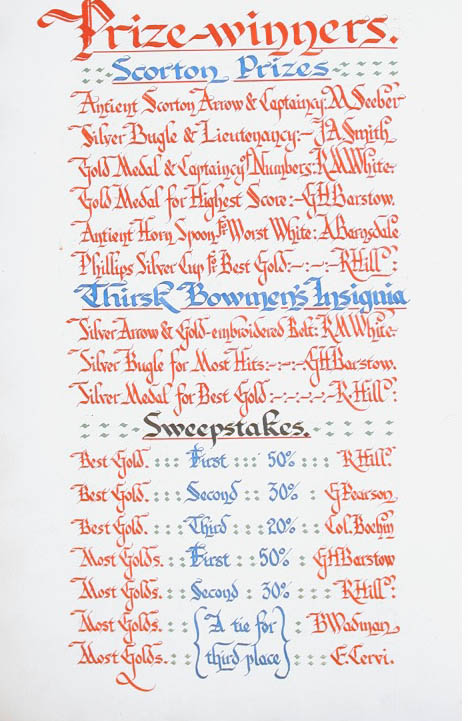 Prize-winners.
Scorton Prizes
Antient Scorton Arrow & Captaincy: M. Seeber
Silver Bugle & Lieutenancy:– J.A. Smith
Gold Medal & Captaincy of Numbers: R.M. White.
Gold Medal for Highest Score:– G.H. Barstow.
Antient Horn Spoon for Worst White: A. Barnsdale
Phillips Silver Cup for Best Gold:–:–:– R. Hill:
Thirsk Bowmen's Insignia
Silver Arrow & Gold-embroidered Belt: R.M. White.
Silver Bugle for Most Hits:–:–:– G.H. Barstow.
Silver Medal for Best Gold:–:–:–:–:– R. Hill:
Sweepstakes.
Best Gold. First 50% R. Hill.
Best Gold. Second 30% G. Pearson
Best Gold. Third 20% Col. Boehm
Most Golds. First 50% G.H. Barstow
Most Golds. Second 30% R. Hill.
Most Golds. A tie for B. Wadman
Most Golds. third place E. Cervi.